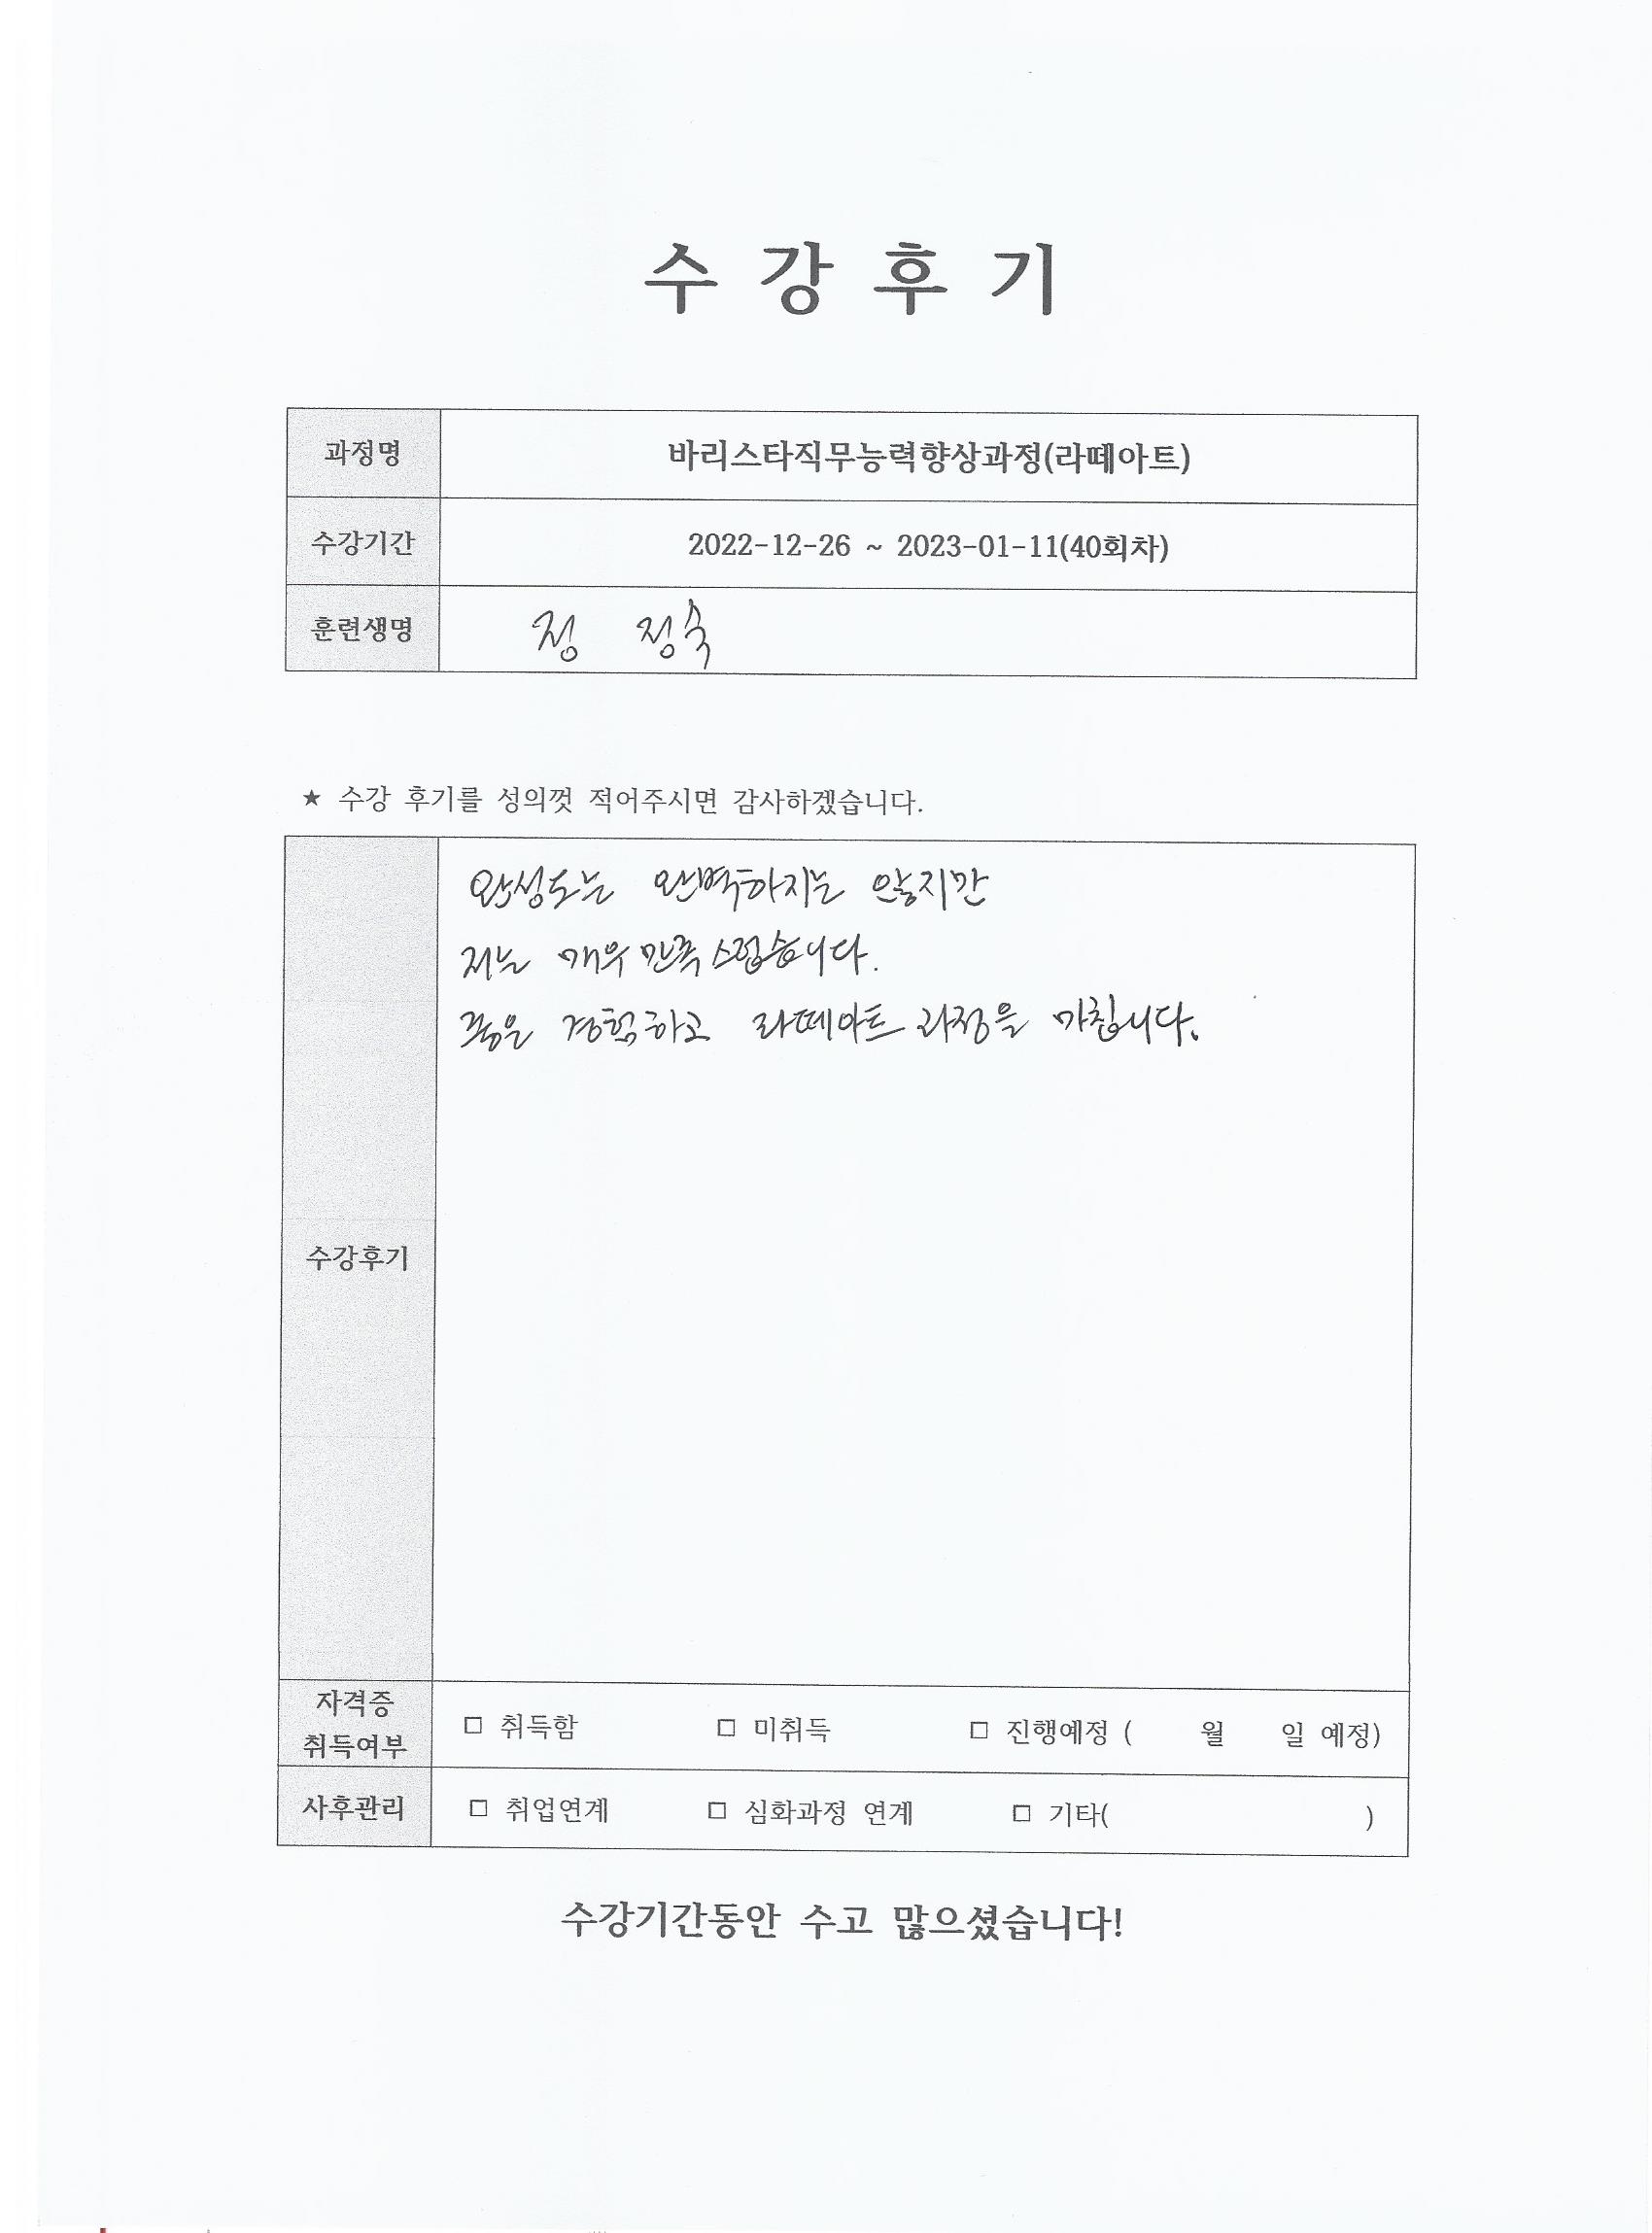 수 강 후 기
과정명 바리스타직무능력향상과정(라떼아트)
수강기간 2022-12-26 ~ 2023-01-11(40회차)
훈련생명 정 정숙
★ 수강 후기를 성의껏 적어주시면 감사하겠습니다.
완성도는 완벽하지는 않지만
저는 매우 만족스럽습니다.
좋은 경험하고 라떼아트 과정을 마칩니다.
수강후기
자격증
취득여부
□ 취득함 □ 미취득 □ 진행예정 ( 월 일 예정)
사후관리 □ 취업연계 □ 심화과정 연계 □ 기타( )
수강기간동안 수고 많으셨습니다!